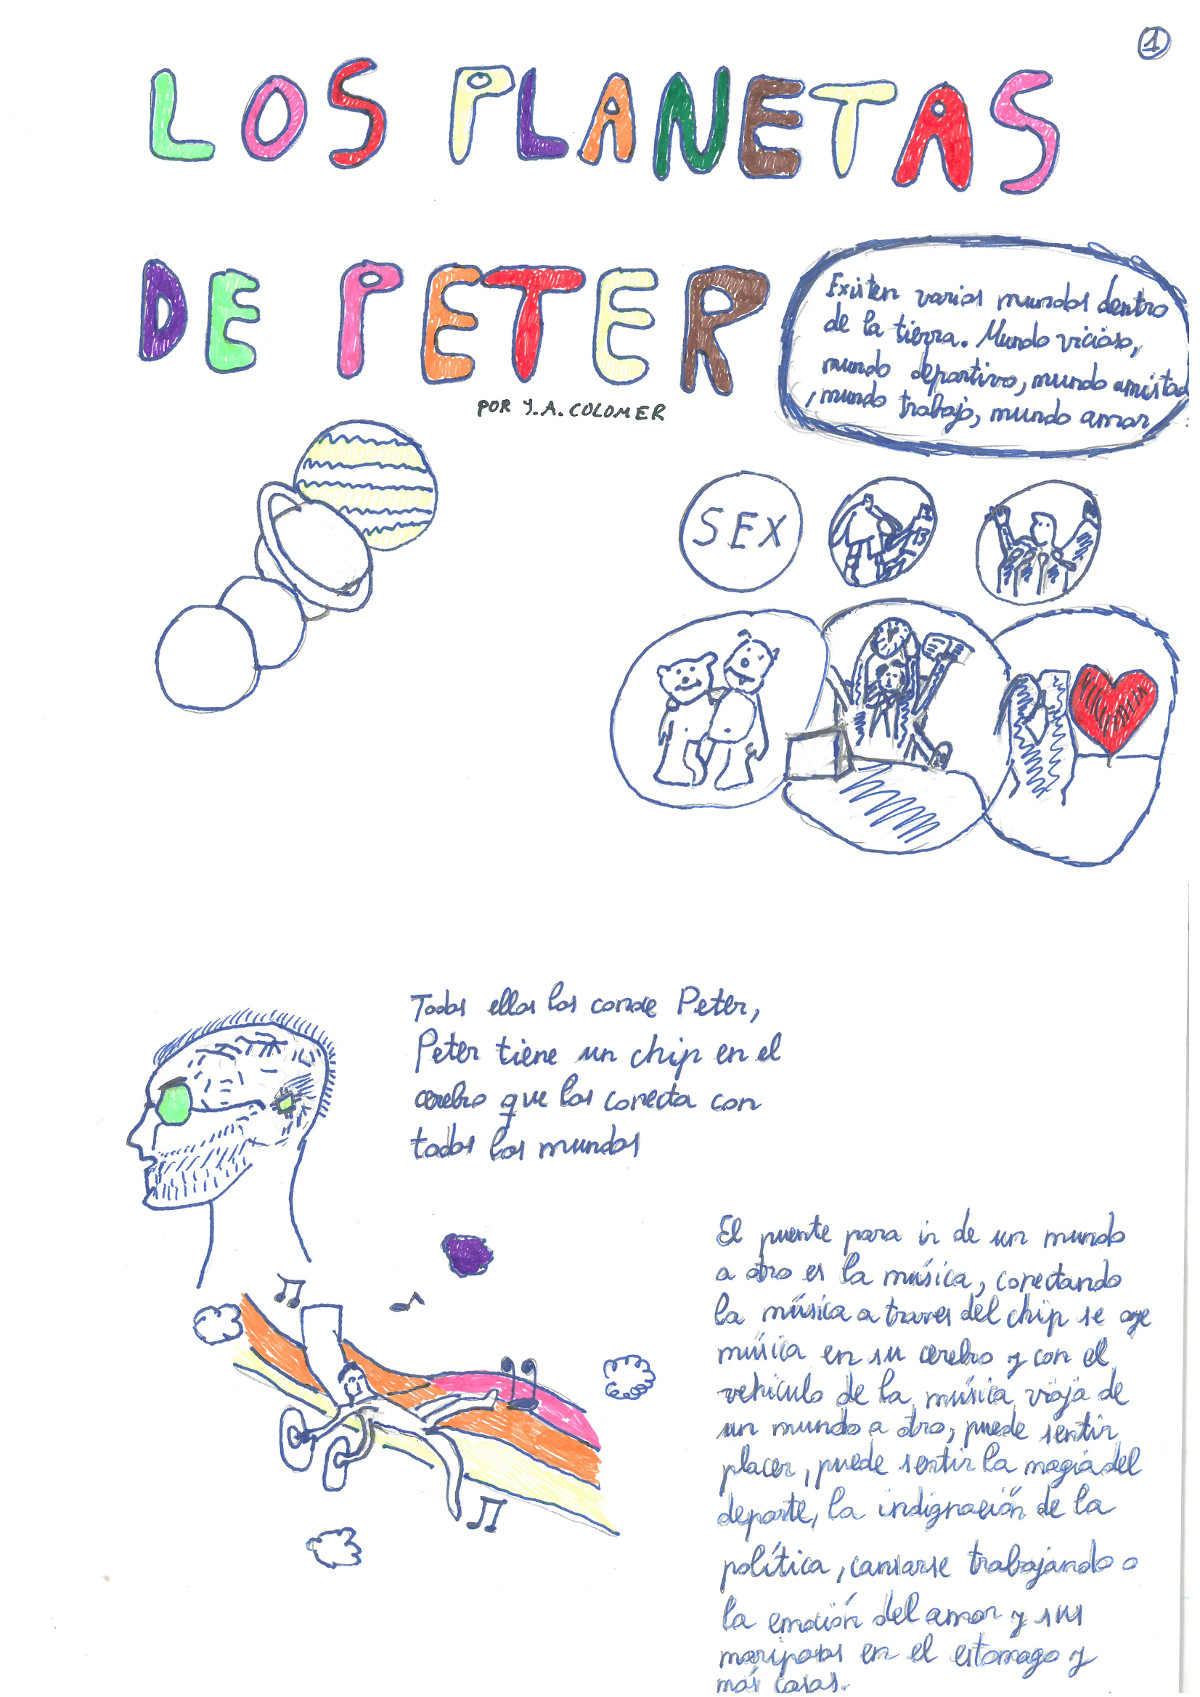 1
LOS PLANETAS
DE PETER
POR Y.A. COLOMER
Existen varios mundos dentro
de la tierra. Mundo vicioso,
mundo deportivo, mundo amistad
, mundo trabajo, mundo amor
SEX
13
Todos ellos los conoce Peter,
Peter tiene un chip en el
cerebro que los conecta con
todos los mundos
El puente para ir de un mundo
a otro es la música, conectando
la música a traves del chip se oye
música en su cerebro y con el
vehiculo de la música viaja de
un mundo a otro, puede sentir
placer, puede sentir la magia del
deporte, la indignación de la
política, cansarse trabajando o
la emoción del amor y sus
mariposas en el estomago y
más cosas.